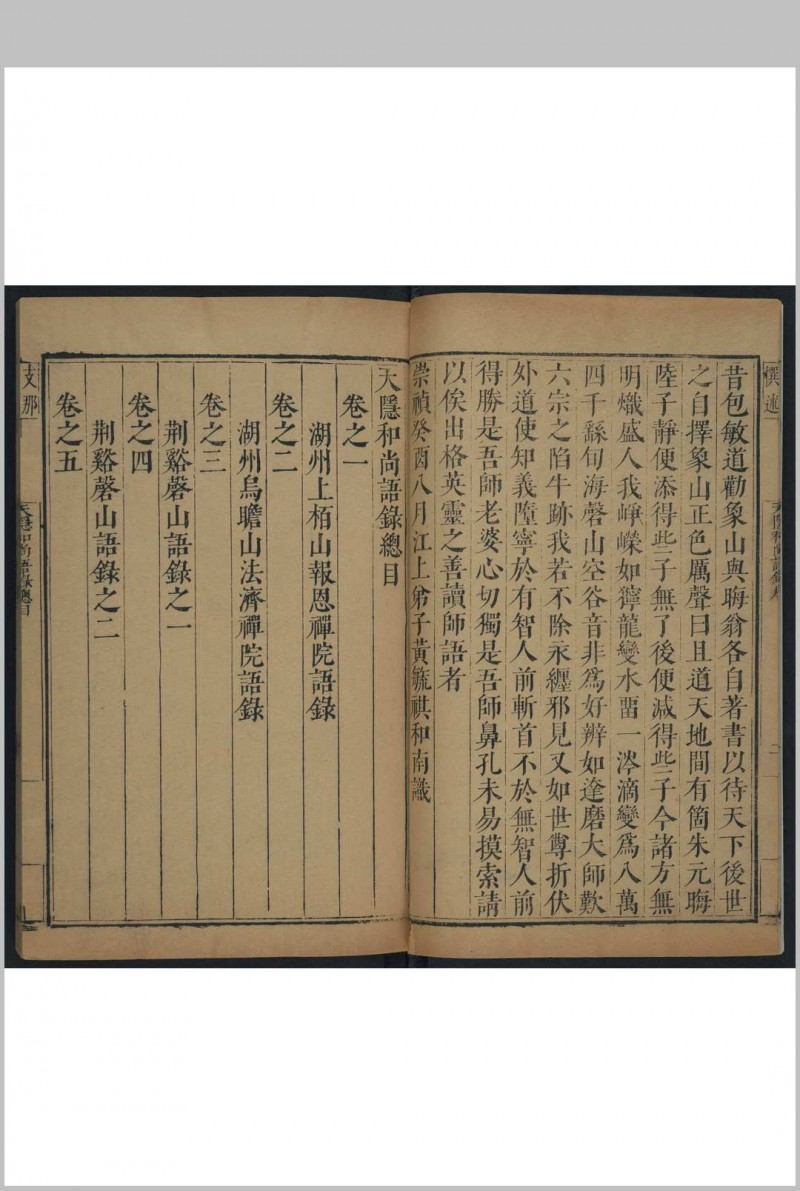 撰述
昔包敏道勸象山與晦翁各自著書以待天下後世
之自擇象山正色厲聲曰且道天地間有箇朱元晦
陸子靜便添得些子無了後便減得些子今諸方無
明熾盛人我崢嶸如獰龍變水畱一涔滴變爲八萬
四千繇旬海磬山空谷音非爲好辨如達磨大師歎
六宗之陷牛跡我若不除永纏邪見又如世尊折伏
外道使知義墮寧於有智人前斬首不於無智人前
得勝是吾師老婆心切獨是吾師鼻孔未易摸索請
以俟出格英靈之善讀師語者
崇禎癸酉八月江上弟子黃毓祺和南識
天隱和尚語錄總目
卷之一
湖州上栢山報恩禪院語錄
卷之二
湖州烏瞻山法濟禪院語錄
卷之三
荆谿磬山語錄之一
卷之四
荆谿磬山語錄之二
卷之五
支那
天隱和尚語錄總目